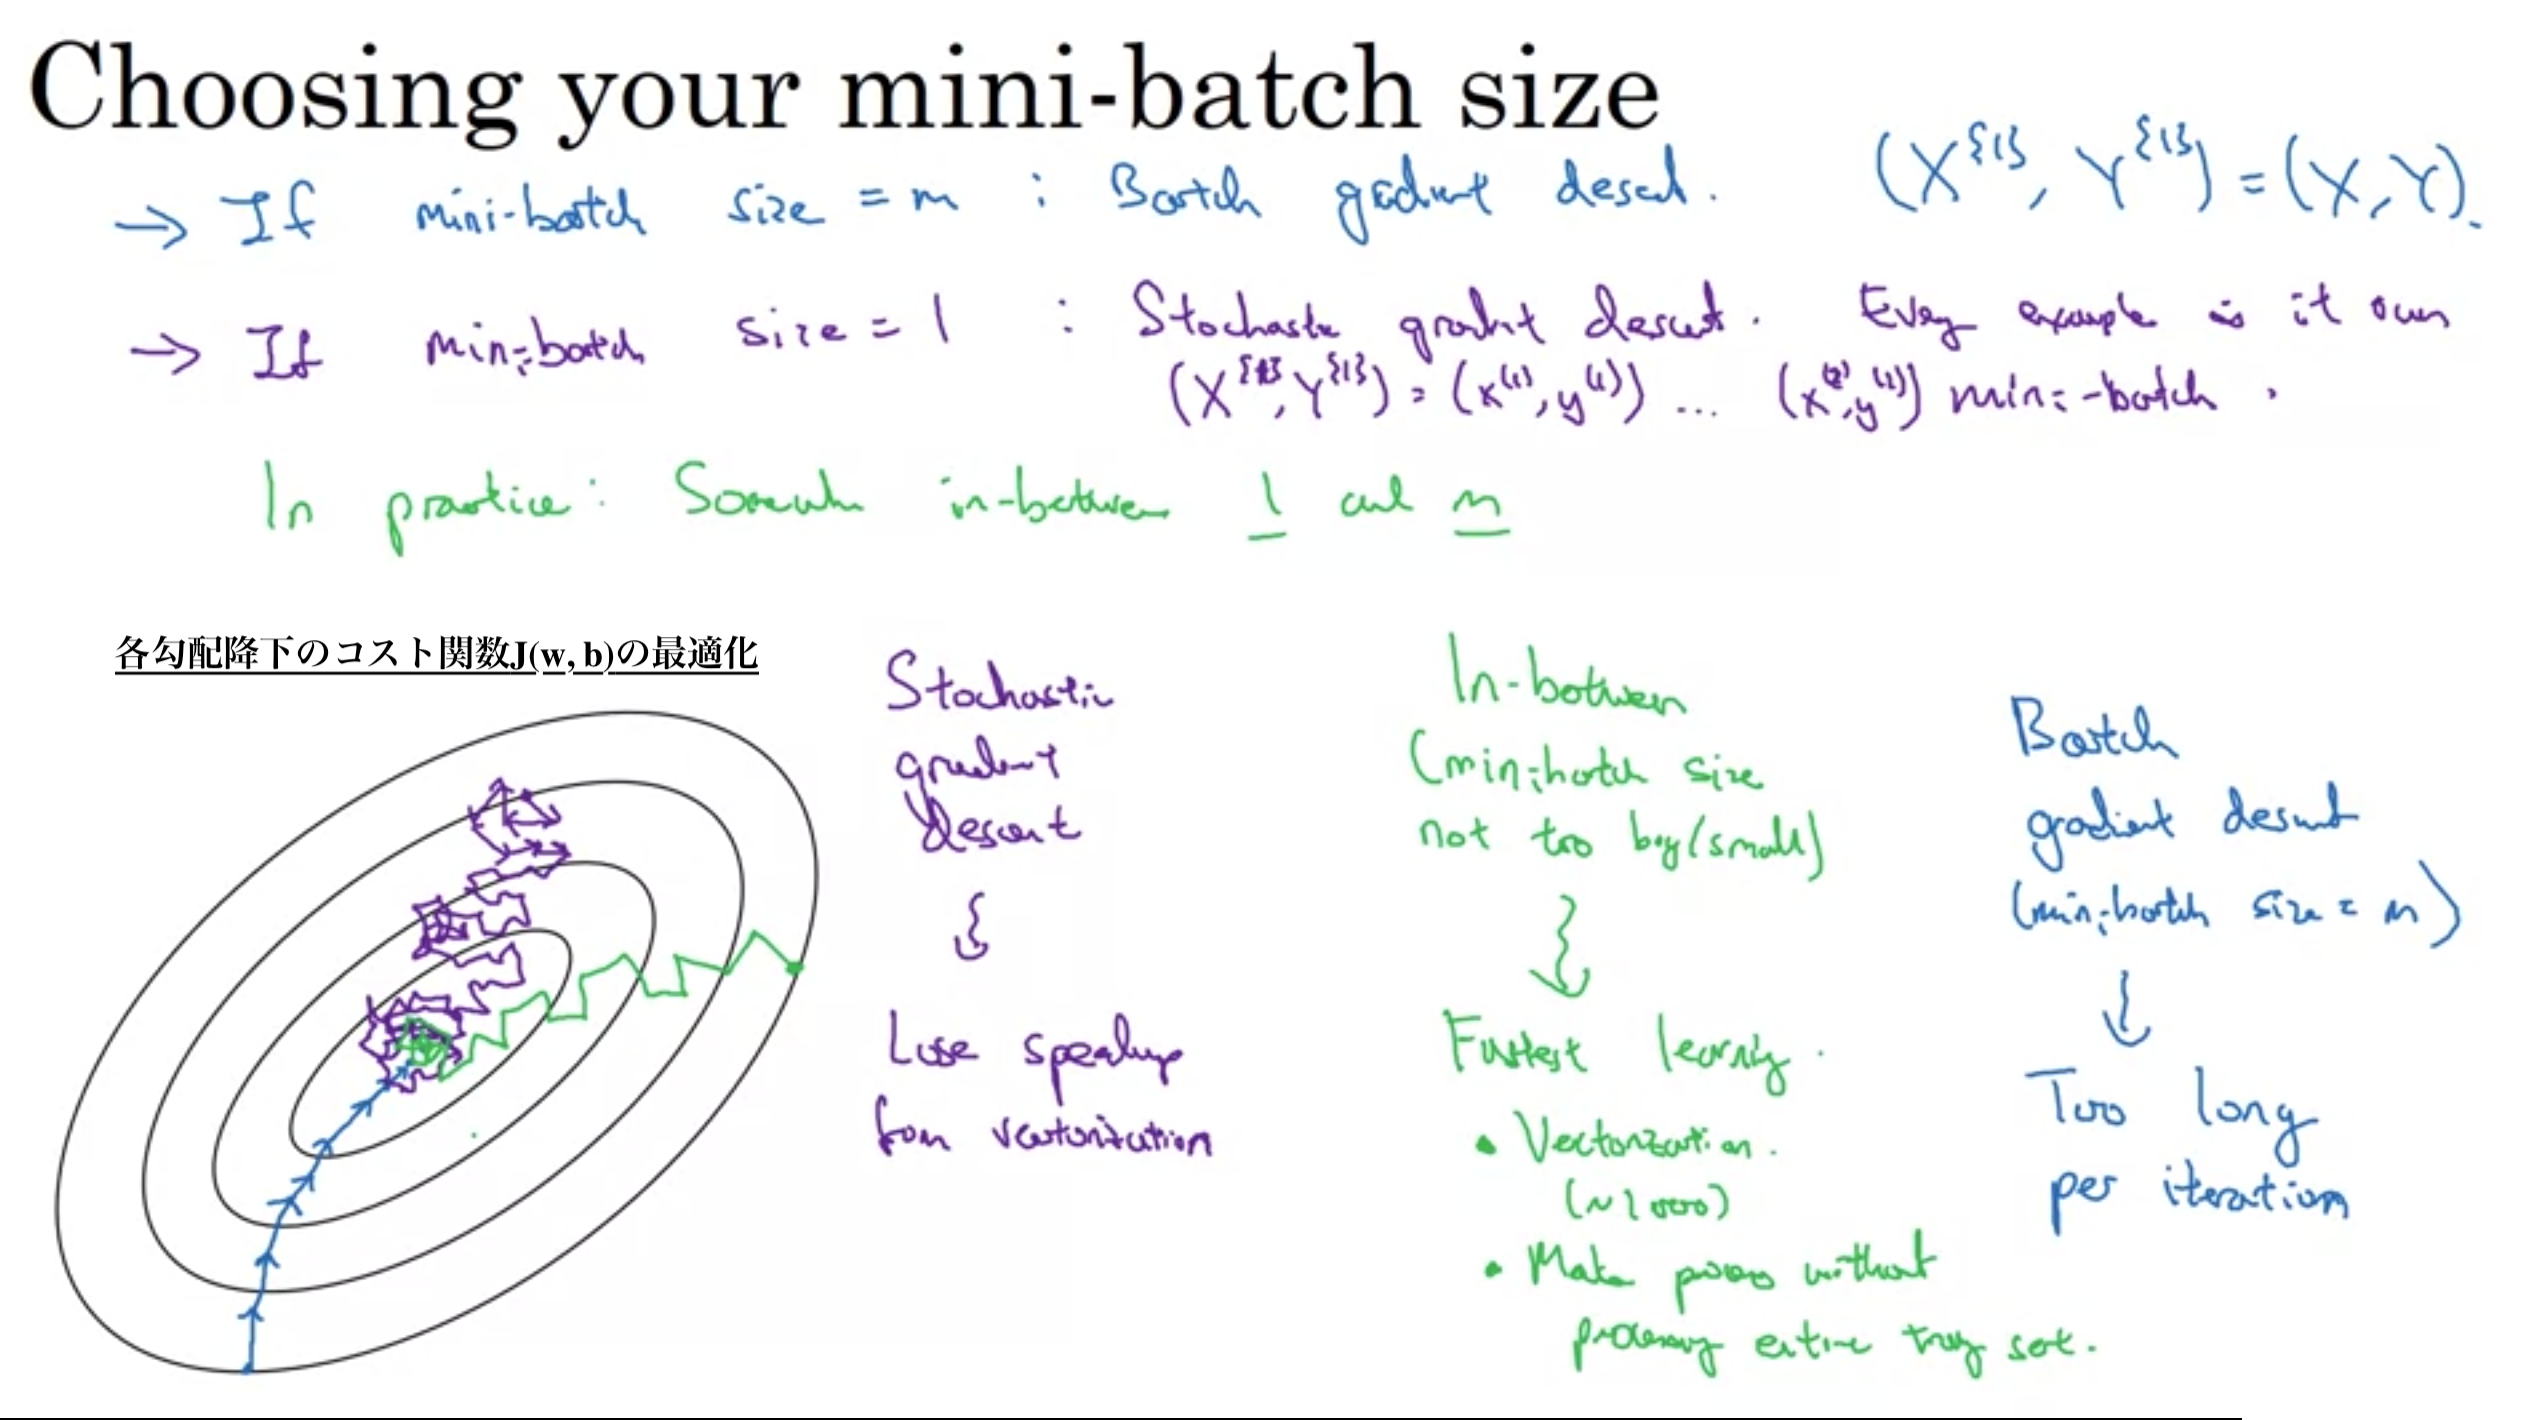 Choosing your mini-batch size
→ If mini-batch size = m : Batch gradient descent. (X^{1}, Y^{1}) = (X, Y).
→ If mini-batch size = 1 : Stochastic gradient descent. Every example is it own
(X^{1}, Y^{1}) = (x^(1), y^(1)) ... (x^(2), y^(2)) mini-batch.
In practice: Somewhere in-between 1 and m
各勾配降下のコスト関数J(w, b)の最適化
Stochastic
gradient
descent
Lose speedup
from vectorization
In-between
(mini-batch size
not too big/small)
Fastest learning.
• Vectorization.
(~1000)
• Make progress without
processing entire training set.
Batch
gradient descent
(mini-batch size = m)
Too long
per iteration